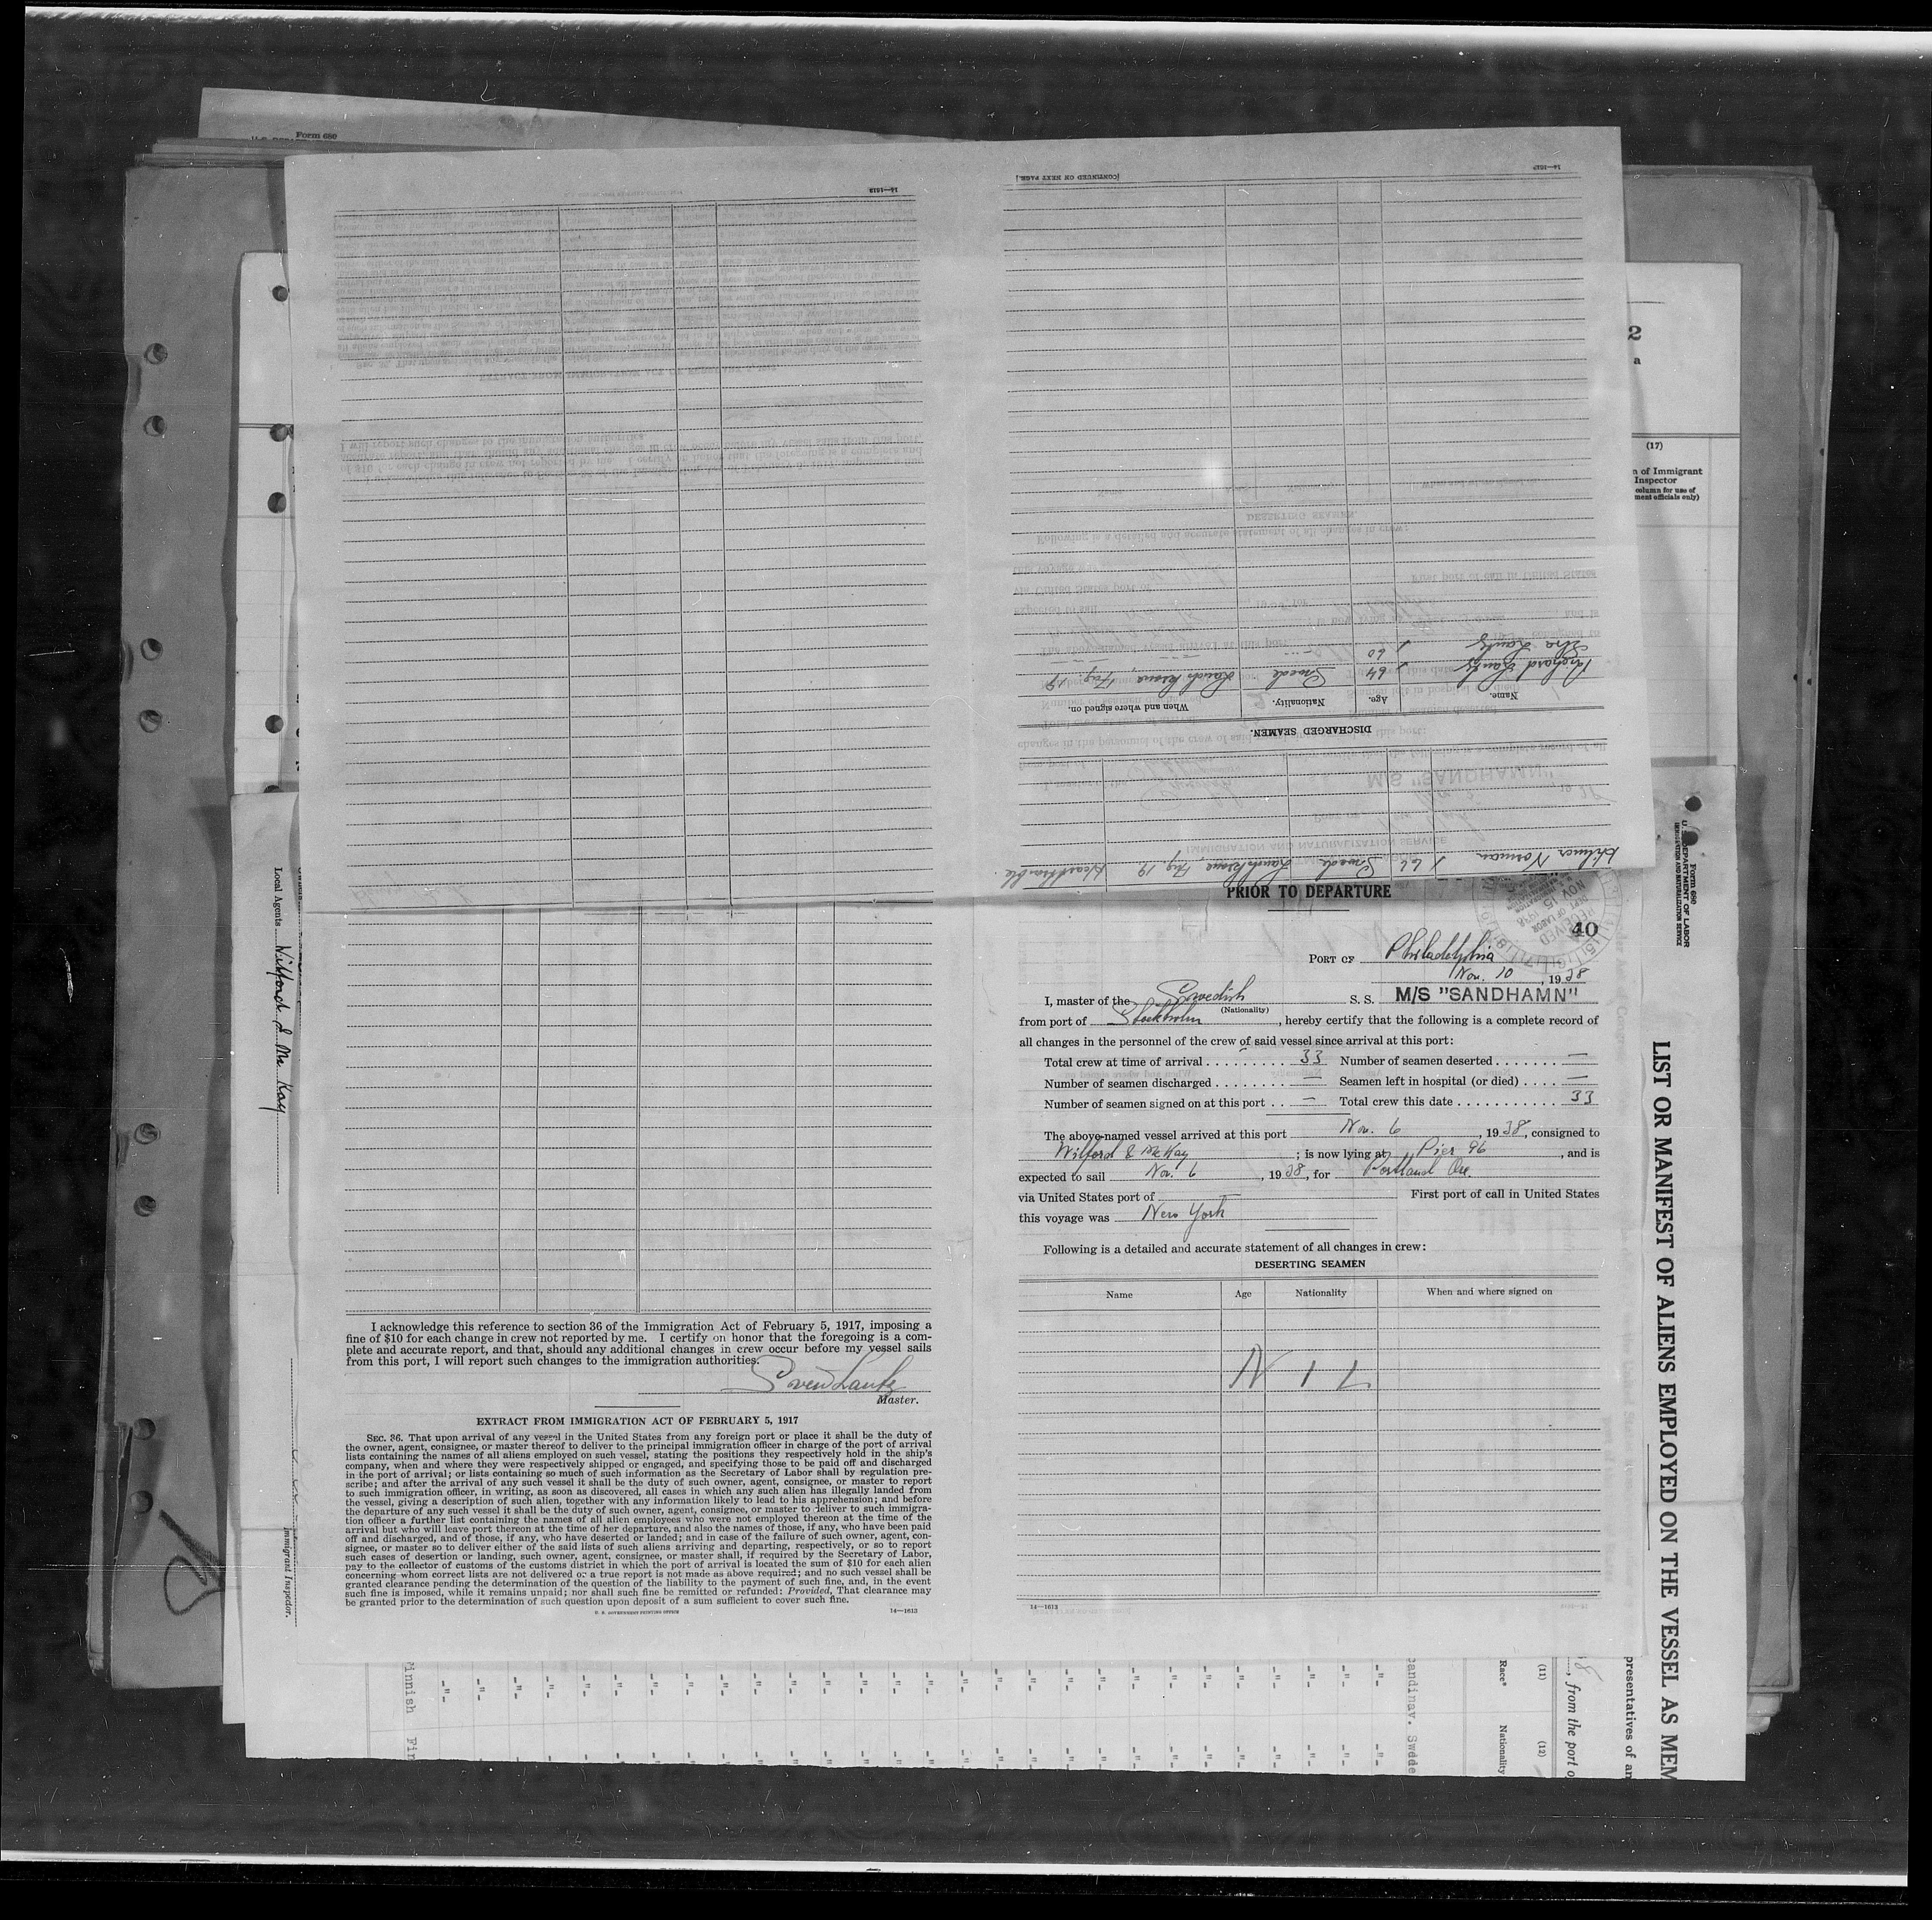 Form 680
14—1613
[CONTINUED ON NEXT PAGE]
14—1613
DISCHARGED SEAMEN.
Name.
Age.
Nationality.
When and where signed on.
Richard Lantz
64
Swede
Landskrona Aug. 19
Lantz
60
Hilmer Norman
Swede
Landskrona, Aug. 19
Hearttrouble
2
a
(17)
n of Immigrant
Inspector
column for use of
ment officials only)
PRIOR TO DEPARTURE
40
PORT OF Philadelphia
Nov. 10, 1938
I, master of the Swedish S. S. M/S "SANDHAMN"
(Nationality)
from port of Stockholm, hereby certify that the following is a complete record of
all changes in the personnel of the crew of said vessel since arrival at this port:
Total crew at time of arrival . . . . . . . . . . 33 Number of seamen deserted . . . . . . . —
Number of seamen discharged . . . . . . . . — Seamen left in hospital (or died) . . . . —
Number of seamen signed on at this port . . — Total crew this date . . . . . . . . . . . 33
The above-named vessel arrived at this port Nov. 6, 1938, consigned to
Wilford & McKay; is now lying at Pier 96, and is
expected to sail Nov. 6, 1938, for Portland Ore.
via United States port of First port of call in United States
this voyage was New York
Following is a detailed and accurate statement of all changes in crew:
DESERTING SEAMEN
Name Age Nationality When and where signed on
N I L
14—1613
I acknowledge this reference to section 36 of the Immigration Act of February 5, 1917, imposing a
fine of $10 for each change in crew not reported by me. I certify on honor that the foregoing is a com-
plete and accurate report, and that, should any additional changes in crew occur before my vessel sails
from this port, I will report such changes to the immigration authorities.
Sven Lantz
Master.
EXTRACT FROM IMMIGRATION ACT OF FEBRUARY 5, 1917
SEC. 36. That upon arrival of any vessel in the United States from any foreign port or place it shall be the duty of
the owner, agent, consignee, or master thereof to deliver to the principal immigration officer in charge of the port of arrival
lists containing the names of all aliens employed on such vessel, stating the positions they respectively hold in the ship's
company, when and where they were respectively shipped or engaged, and specifying those to be paid off and discharged
in the port of arrival; or lists containing so much of such information as the Secretary of Labor shall by regulation pre-
scribe; and after the arrival of any such vessel it shall be the duty of such owner, agent, consignee, or master to report
to such immigration officer, in writing, as soon as discovered, all cases in which any such alien has illegally landed from
the vessel, giving a description of such alien, together with any information likely to lead to his apprehension; and before
the departure of any such vessel it shall be the duty of such owner, agent, consignee, or master to deliver to such immigra-
tion officer a further list containing the names of all alien employees who were not employed thereon at the time of the
arrival but who will leave port thereon at the time of her departure, and also the names of those, if any, who have been paid
off and discharged, and of those, if any, who have deserted or landed; and in case of the failure of such owner, agent, con-
signee, or master so to deliver either of the said lists of such aliens arriving and departing, respectively, or so to report
such cases of desertion or landing, such owner, agent, consignee, or master shall, if required by the Secretary of Labor,
pay to the collector of customs of the customs district in which the port of arrival is located the sum of $10 for each alien
concerning whom correct lists are not delivered or a true report is not made as above required; and no such vessel shall be
granted clearance pending the determination of the question of the liability to the payment of such fine, and, in the event
such fine is imposed, while it remains unpaid; nor shall such fine be remitted or refunded: Provided, That clearance may
be granted prior to the determination of such question upon deposit of a sum sufficient to cover such fine.
U. S. GOVERNMENT PRINTING OFFICE 14—1613
Local Agents Wilford & Mc Kay
Immigrant Inspector.
Form 680
U. S. DEPARTMENT OF LABOR
IMMIGRATION AND NATURALIZATION SERVICE
LIST OR MANIFEST OF ALIENS EMPLOYED ON THE VESSEL AS MEM
presentatives of an
, from the port o
(11) (12)
Race* Nationality
candinav. Swede
innish Fin